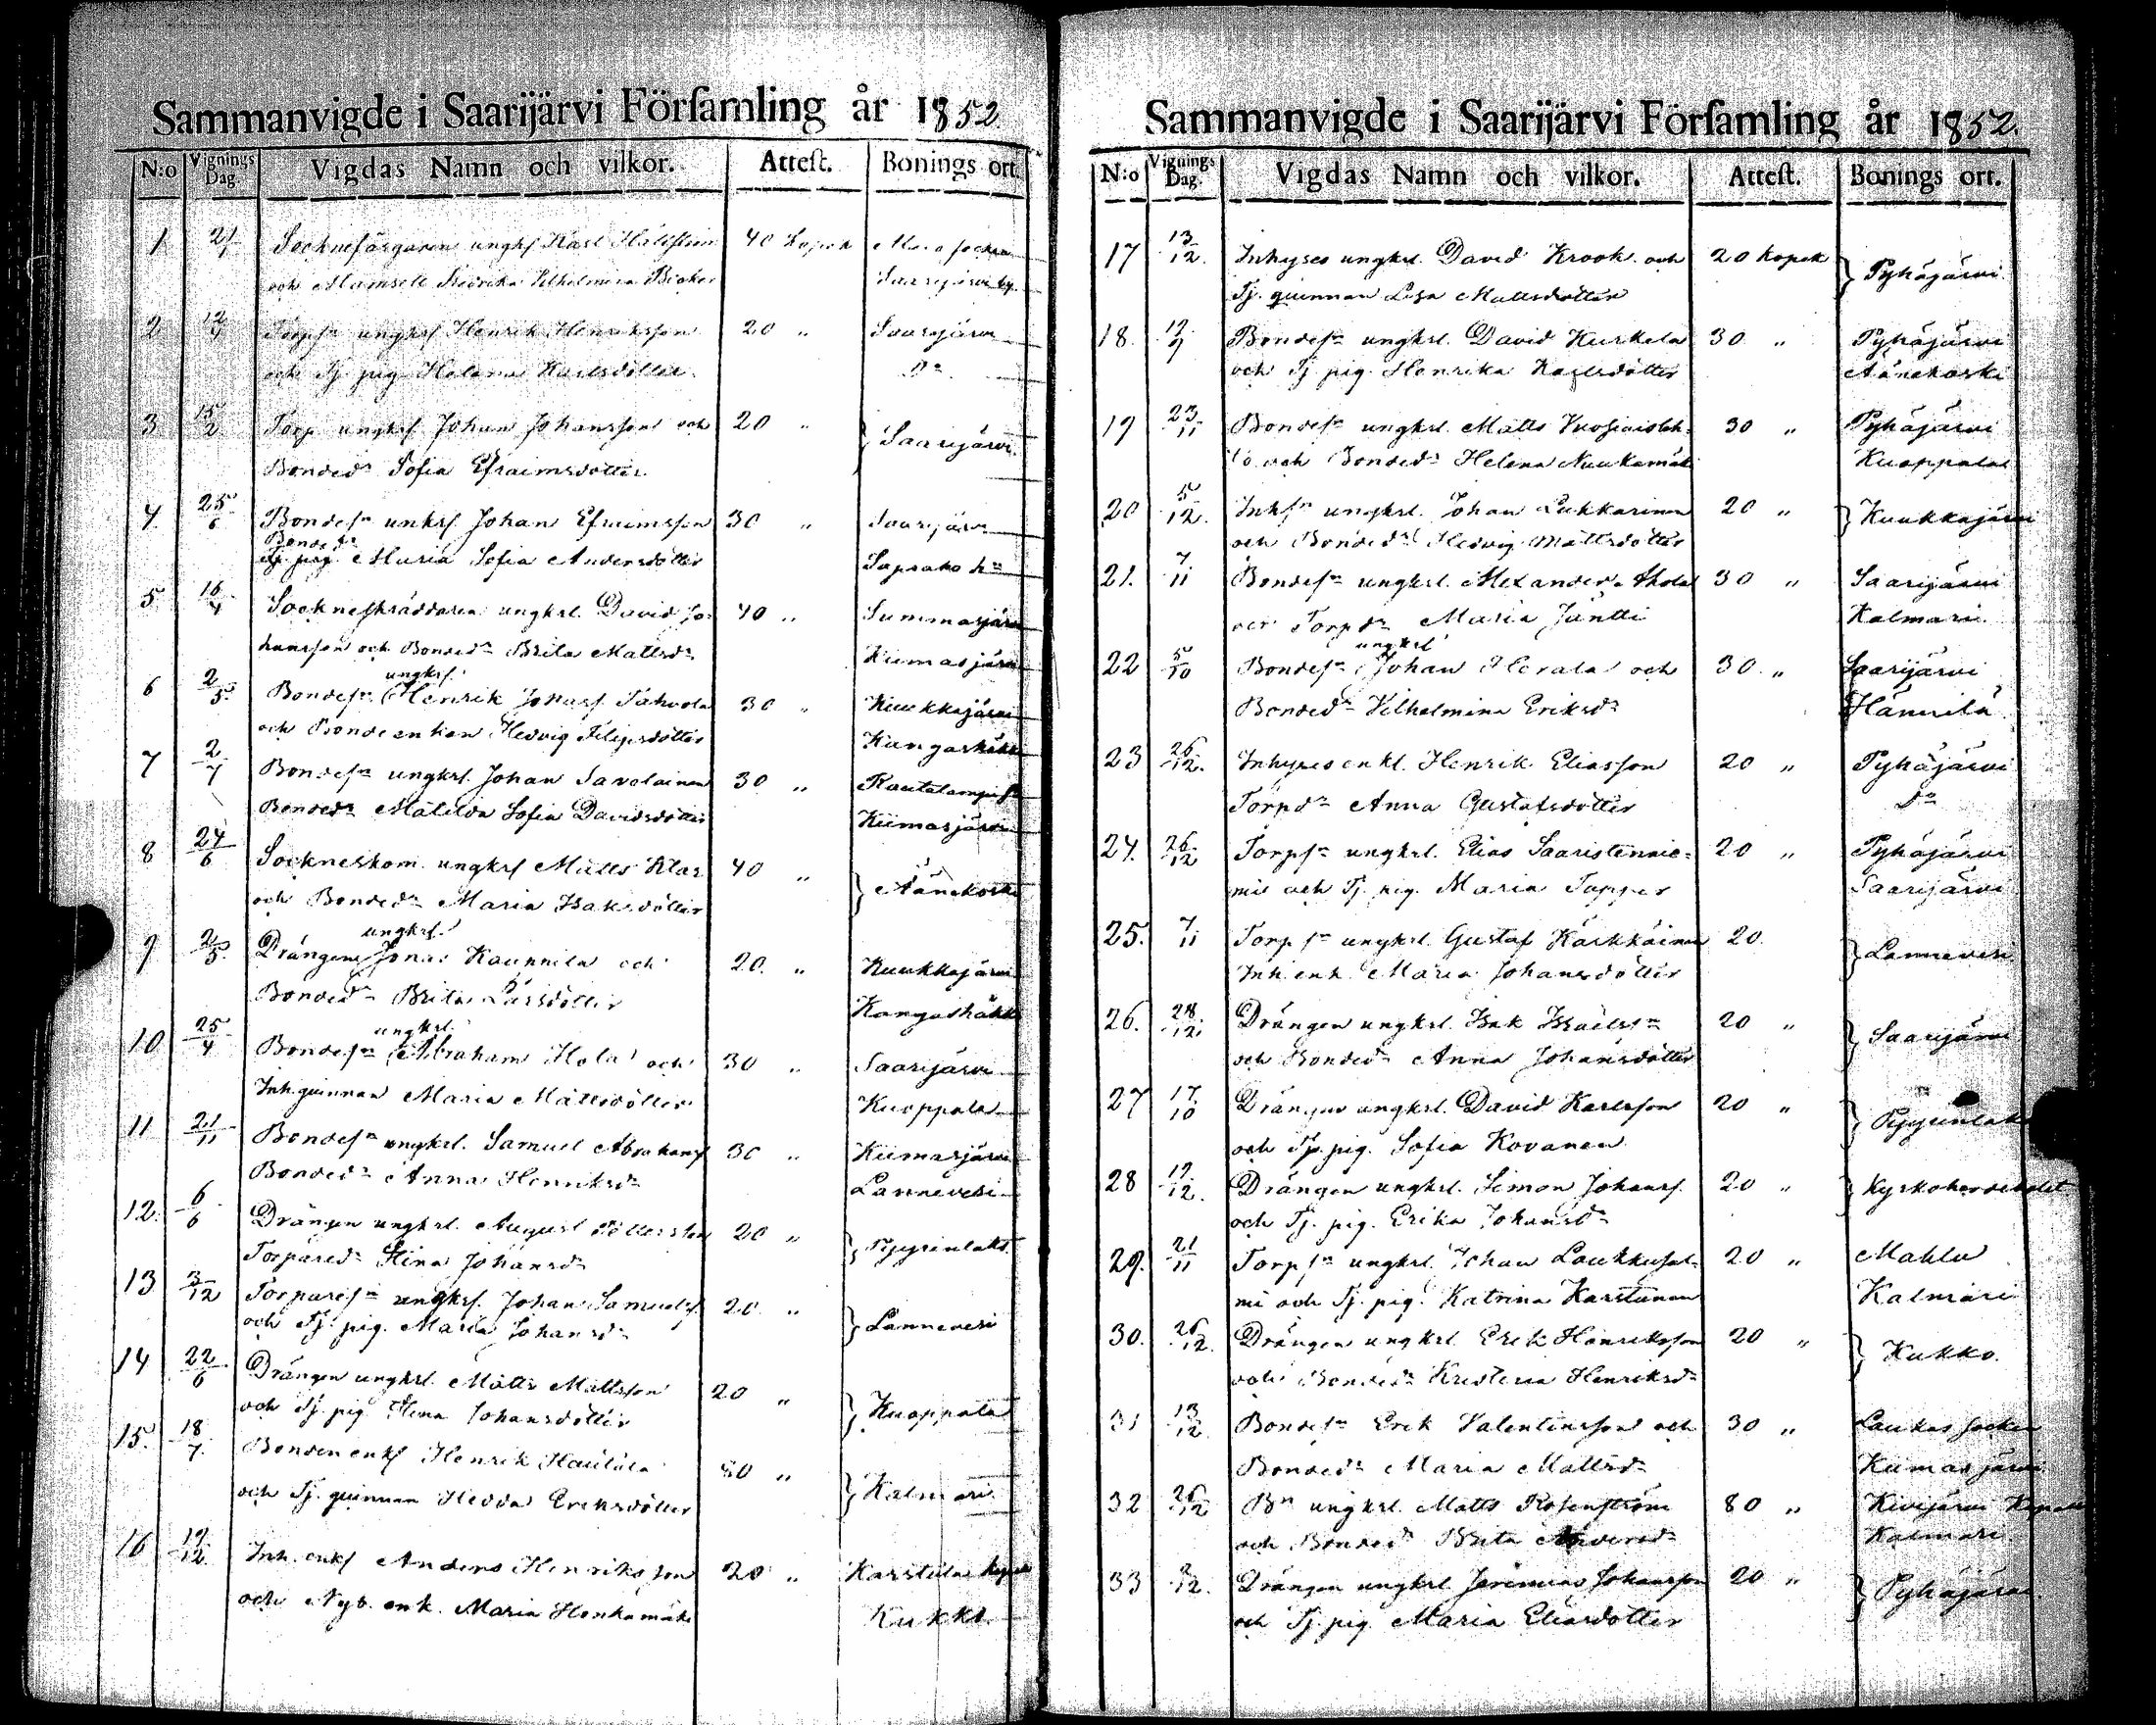 Sammanvigde i Saarijärvi Förſamling år 1852.
N:o Vignings Dag. Vigdas Namn och vilkor. Atteſt. Bonings ort.
1 21/ Socknefärgaren ungkf Karl Hällström 40 Kopek socken
och Mamsell Fredrika Vilhelmina Saarijärvi by.
2 12/4 Torpsn ungkrf Henrik Henriksson 20 " Saarijärvi
och Tj. pig. Helena Karlsdotter Do
3 15/2 Torp ungkrf. Johan Johansson och 20 " } Saarijärvi
Bonded. Sofia Efraimsdotter
4. 25/6 Bondesn unkrf. Johan Efraimsson 30 " Saarijärvi
Bonded.
Tj. pig. Maria Sofia Andersdotter
5 16/4 Sockneskräddaren ungkrl. David Jo- 40 " Summasjärvi
hansson och Bonded. Brita Mattsd. Kiimasjärvi
6 2/5. Bondesn ungkrf. Henrik Jonasf. Tahvola 30 " Kuukkajärvi
och Bondeenkan Hedvig Filipsdotter Kangashäkki
7 2/4 Bondesn ungkrf. Johan Savolainen 30 " Rautalampi
Bonded. Matilda Sofia Davidsdotter Kiimasjärvi
8 24/6 Sockneskom. ungkrf Matts Klas 40 " } Äänekoski
och Bonded. Maria Isaksdotter
9 2/5. Drängen ungkrf. Jonas Kaunnila och 20. " Kuukkajärvi
Bonded. Brita Larsdotter Kangashäkki
10 25/4 Bondesn ungkrl. Abraham Hola och 30 " Saarijärvi
Inh. quinnan Maria Mattsdotter Kuoppala
11 21/11 Bondesn ungkrl. Samuel Abrahamsf 30 " Kiimasjärvi
Bonded. Anna Henriksd. Lannevesi
12. 6/6 Drängen ungkrl. August 20 " } Pyyrinlaks.
Torpared. Stina Johansd.
13 3/12 Torparesn ungkrf. Johan Samuelsf 20. " } Lannevesi
och Tj. pig. Maria Johansd.
14 22/6 Drängen ungkrl. Matts Mattsson 20 " } Kuoppala
och Tj. pig. Johansdotter
15. 18/7. Bonden enkf Henrik Hautala " } Kalmari
och Tj. quinnan Hedda Eriksdotter
16 19/12. Inh. enkf Anders Henriksson 20 " Karstula kapell
och Nyb. enk. Maria Honkamäki Kukko
Sammanvigde i Saarijärvi Förſamling år 1852.
N:o Vignings Dag. Vigdas Namn och vilkor. Atteſt. Bonings ort.
17 13/12. Inhyses ungkrl. David Krook och 20 Kopek } Pyhäjärvi
Tj. quinnan Lisa Mattsdotter
18. 12/4 Bondesn ungkrl. David Kurkela 30 " Pyhäjärvi
och Tj. pig. Henrika Karlsdotter Äänekoski
19 23/11 Bondesn ungkrl. Matts 30 " Pyhäjärvi
och Bonded. Helena Kuoppala
20 5/12. Inhsn ungkrl. Johan Lukkarinen 20 " } Kuukkajärvi
och Bonded. Hedvig Mattsdotter
21. 7/11 Bondesn ungkrl. Alexander Ahola 30 " Saarijärvi
och Torpd. Maria Jäntti Kalmari
22 5/10 Bondesn ungkrl Johan Herala och 30 " Saarijärvi
Bonded. Vilhelmina Eriksd. Hännilä
23 26/12. Inhyses enkl. Henrik Eliasson 20 " Pyhäjärvi
Torpd. Anna Gustafsdotter Do
24. 26/12 Torpsn ungkrl. Elias Saaristennie- 20 " Pyhäjärvi
mi och Tj. pig. Maria Topper Saarijärvi
25. 7/11 Torpsn ungkrl. Gustaf Kärkkäinen 20. } Lannevesi
Inh. enk. Maria Johansdotter
26. 28/12. Drängen ungkrl. Isak Israelsn 20 " } Saarijärvi
och Bonded. Anna Johansdotter
27 17/10 Drängen ungkrl. David Karlsson 20 " } Pyyrinlaks
och Tj. pig. Sofia Kovanen
28 19/12. Drängen ungkrl. Simon Johansf. 20 " } Kyrkoherdebolet
och Tj. pig. Erika Johansd.
29. 21/11 Torpsn ungkrl. Johan Laukkusal- 20 " Mahlu
mi och Tj. pig. Katrina Karttunen Kalmari
30. 26/12. Drängen ungkrl. Erik Henriksson 20 " } Kukko.
och Bonded. Kristina Henriksd.
31 13/12. Bondesn Erik Valentinsson och 30 " Laukas socken
Bonded. Maria Mattsd. Kiimasjärvi
32 26/12 Bn ungkrl. Matts Rosenström 80 " Kivijärvi Kapell
och Bonded. Brita Andersd. Kalmari.
33 3/12. Drängen ungkrl. Jeremias Johansson 20 " } Pyhäjärvi
och Tj. pig. Maria Eliasdotter